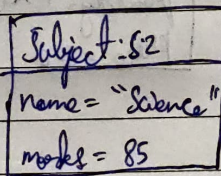 Subject : S2
name = "Science"
marks = 85